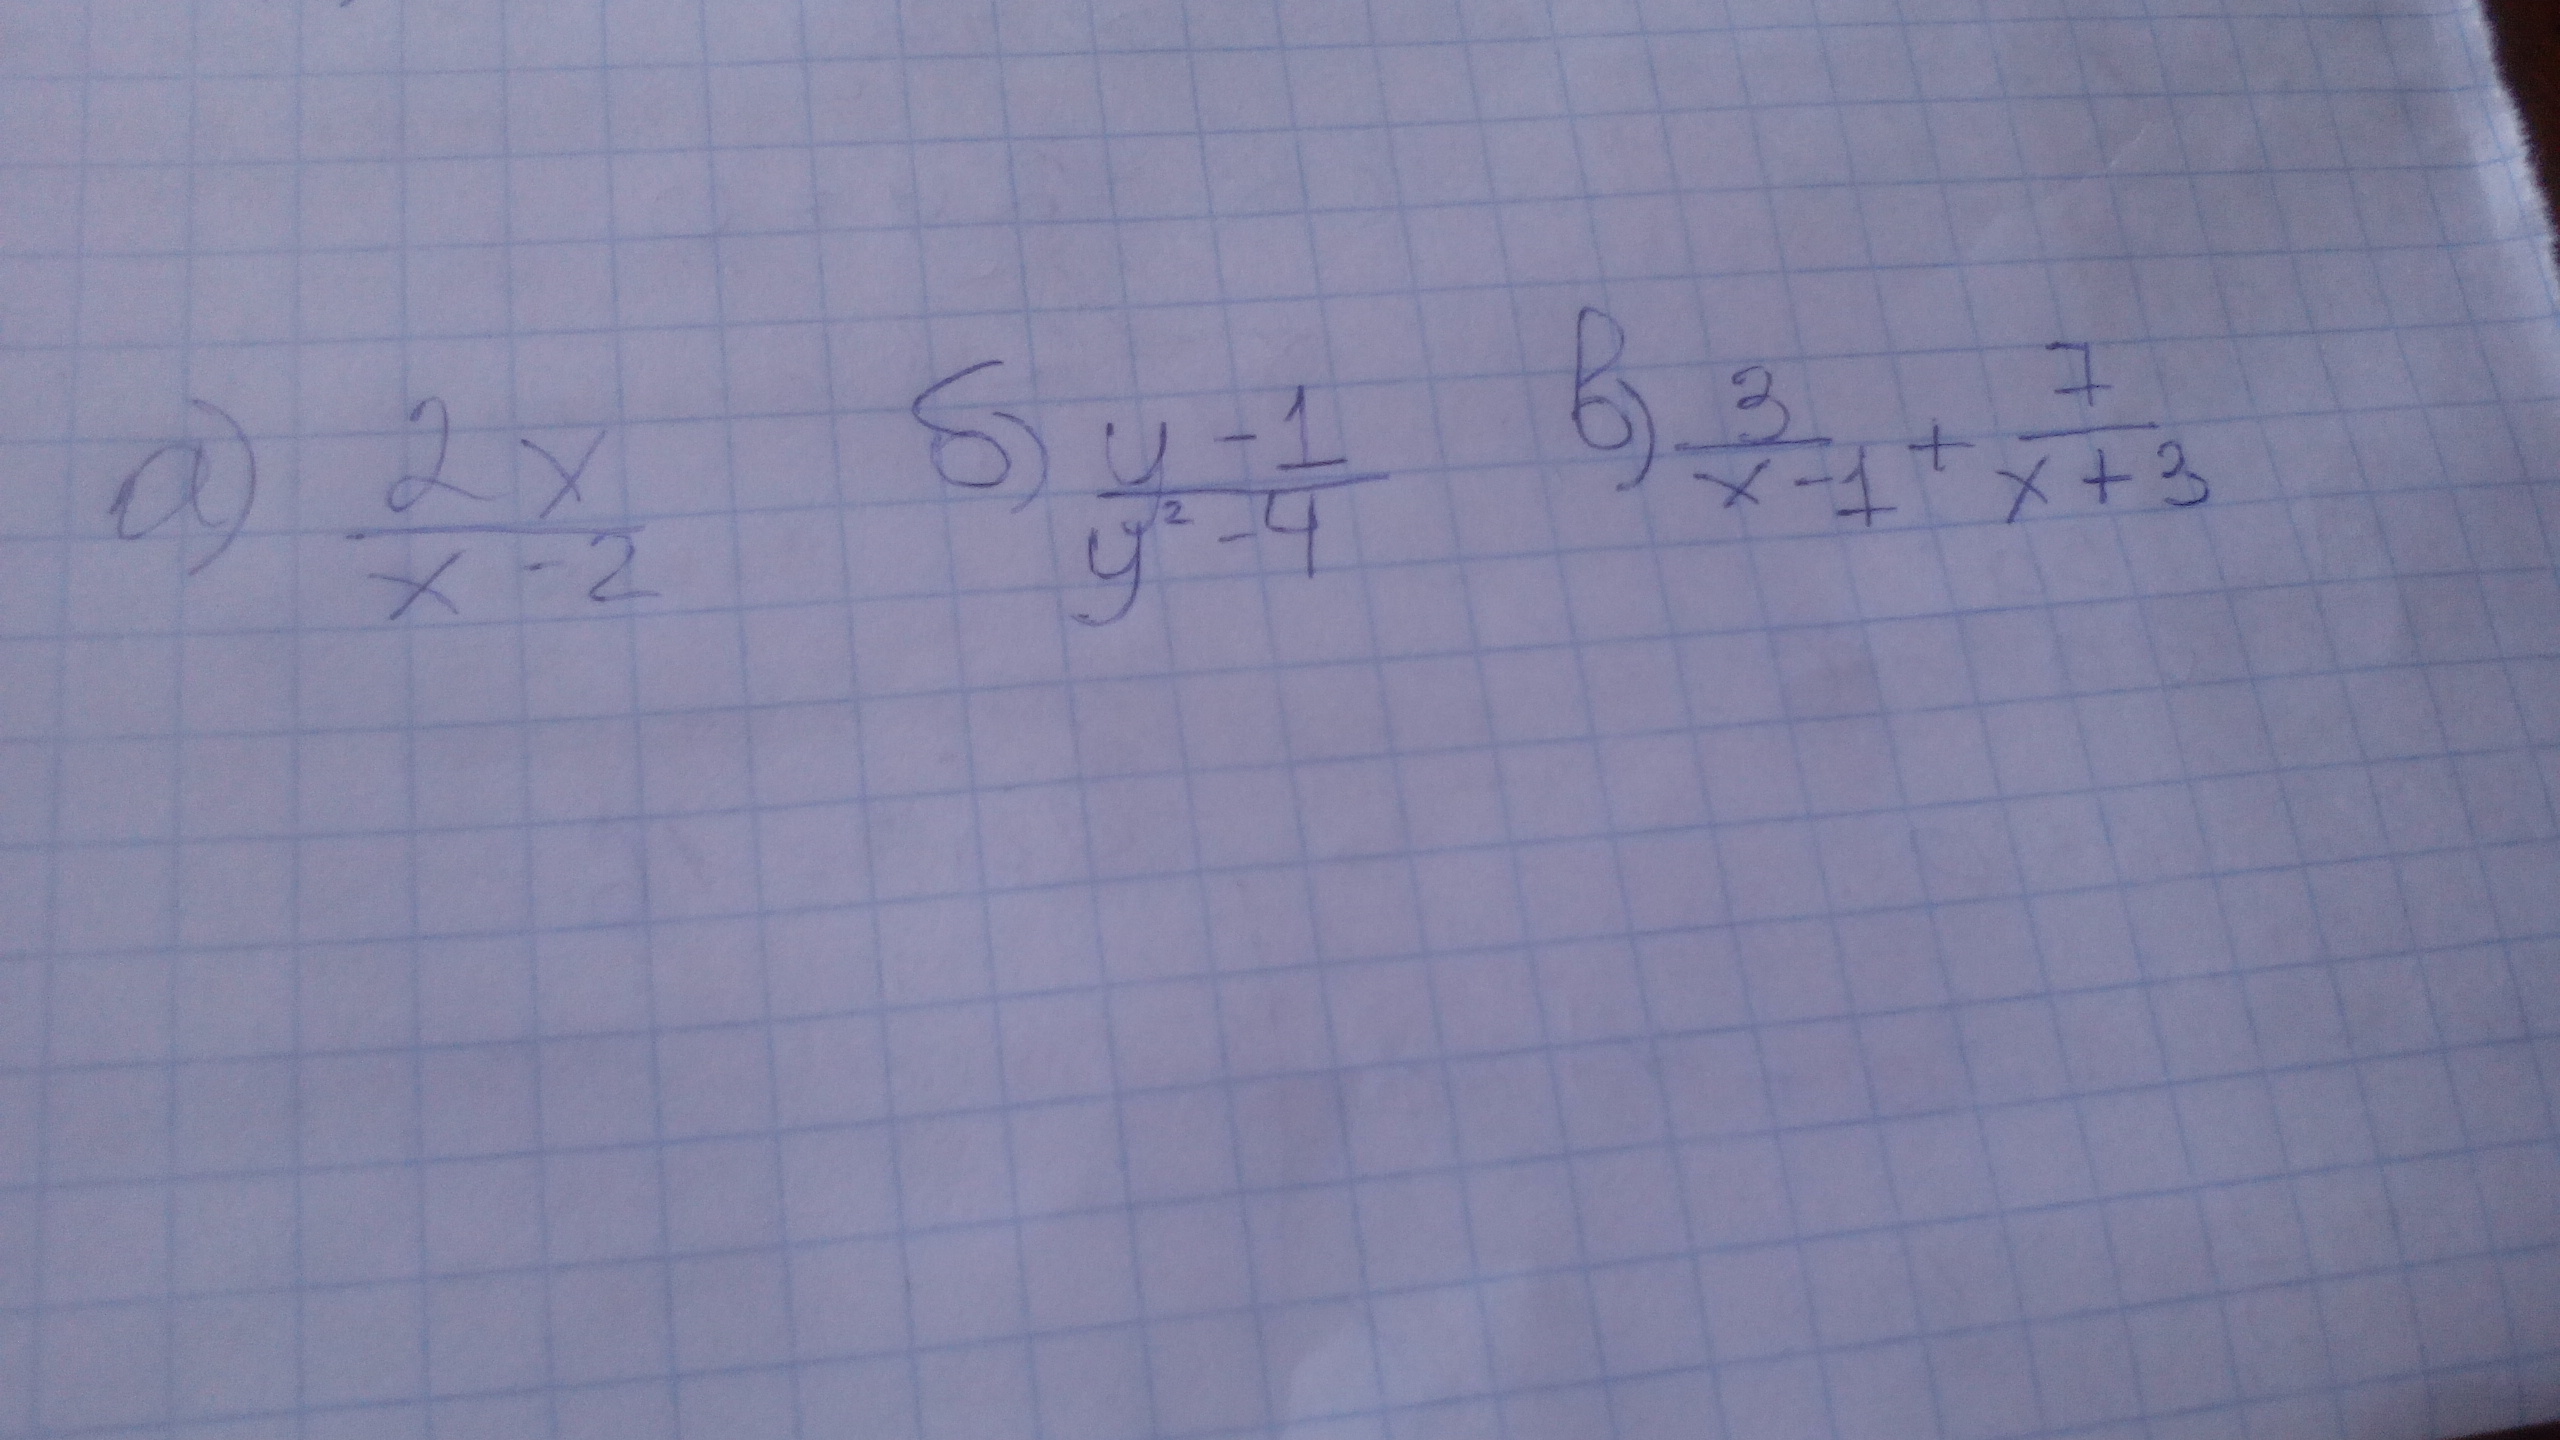 а) 2x/(x-2) б) (y-1)/(y²-4) в) 3/(x-1) + 7/(x+3)